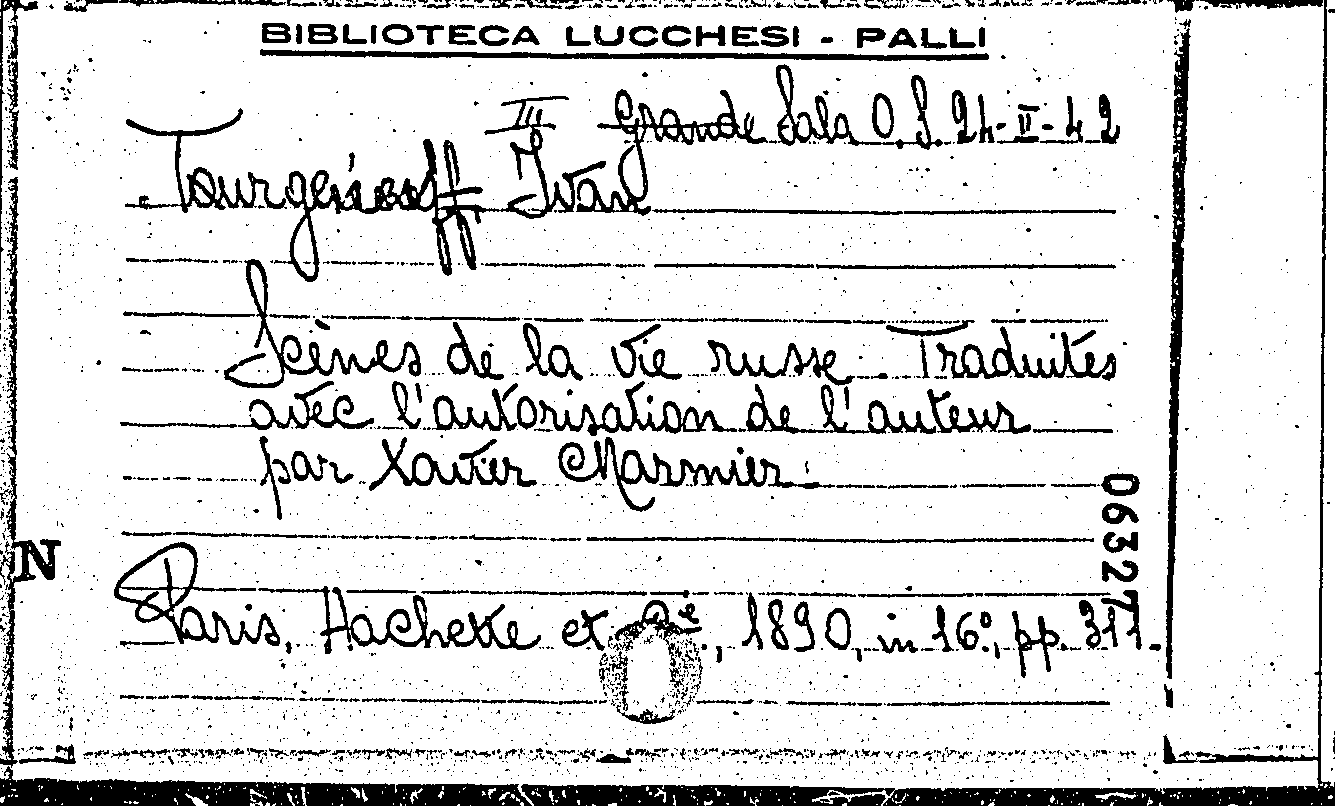 BIBLIOTECA LUCCHESI - PALLI
III Grande Sala O. S. 24-II-42
Tourgéneff Ivan
Scènes de la vie russe. Traduites
avec l'autorisation de l'auteur
par Xavier Marmier.
06327
N
Paris, Hachette et C.ie, 1890, in 16°, pp. 311.